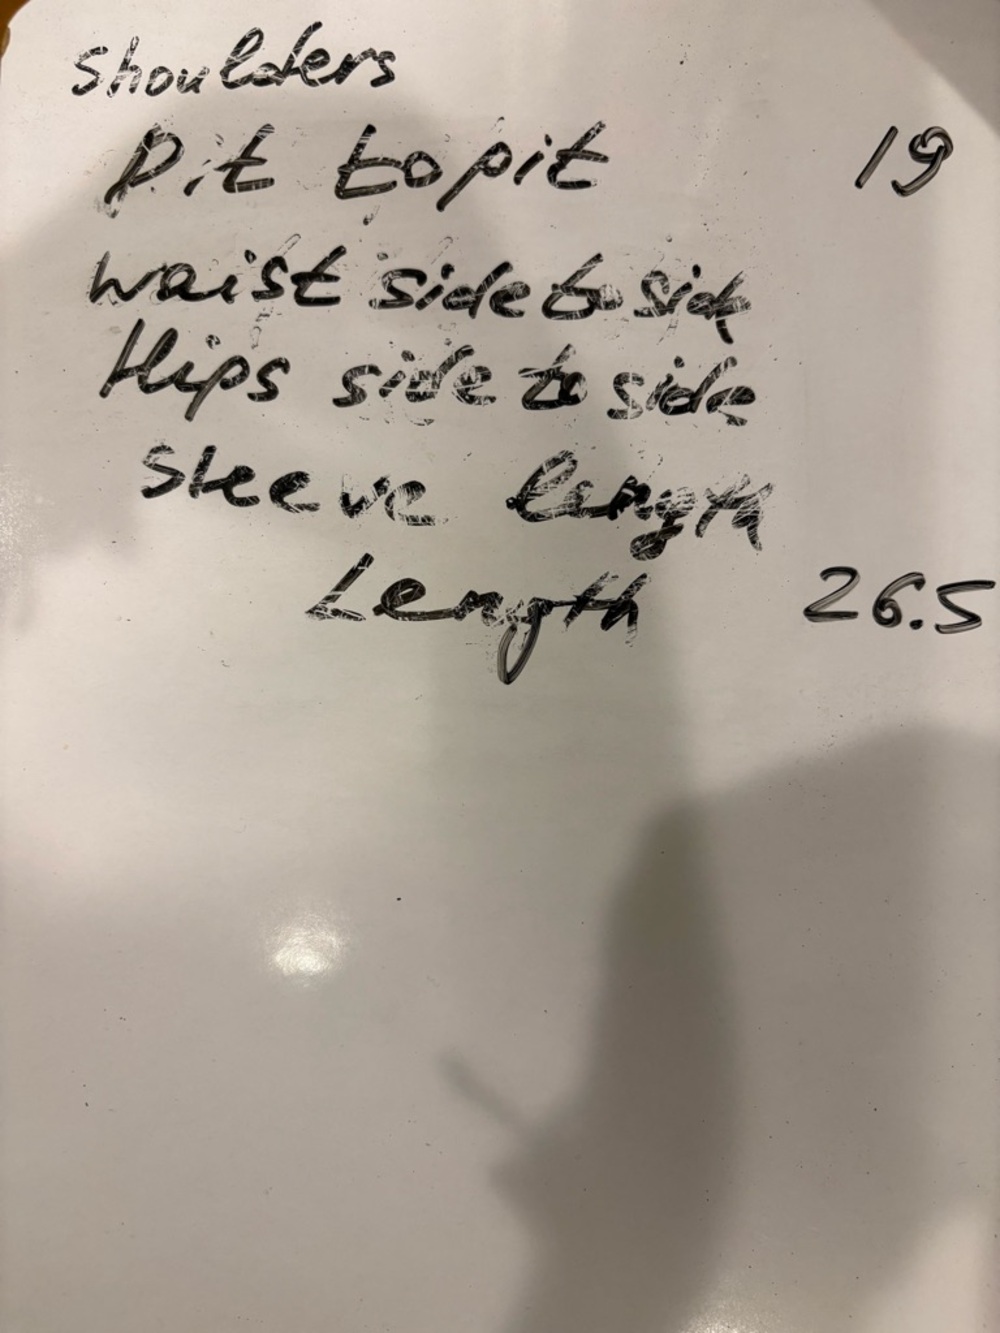 Shoulders
Pit to pit 19
waist side to side
Hips side to side
Sleeve length
Length 26.5